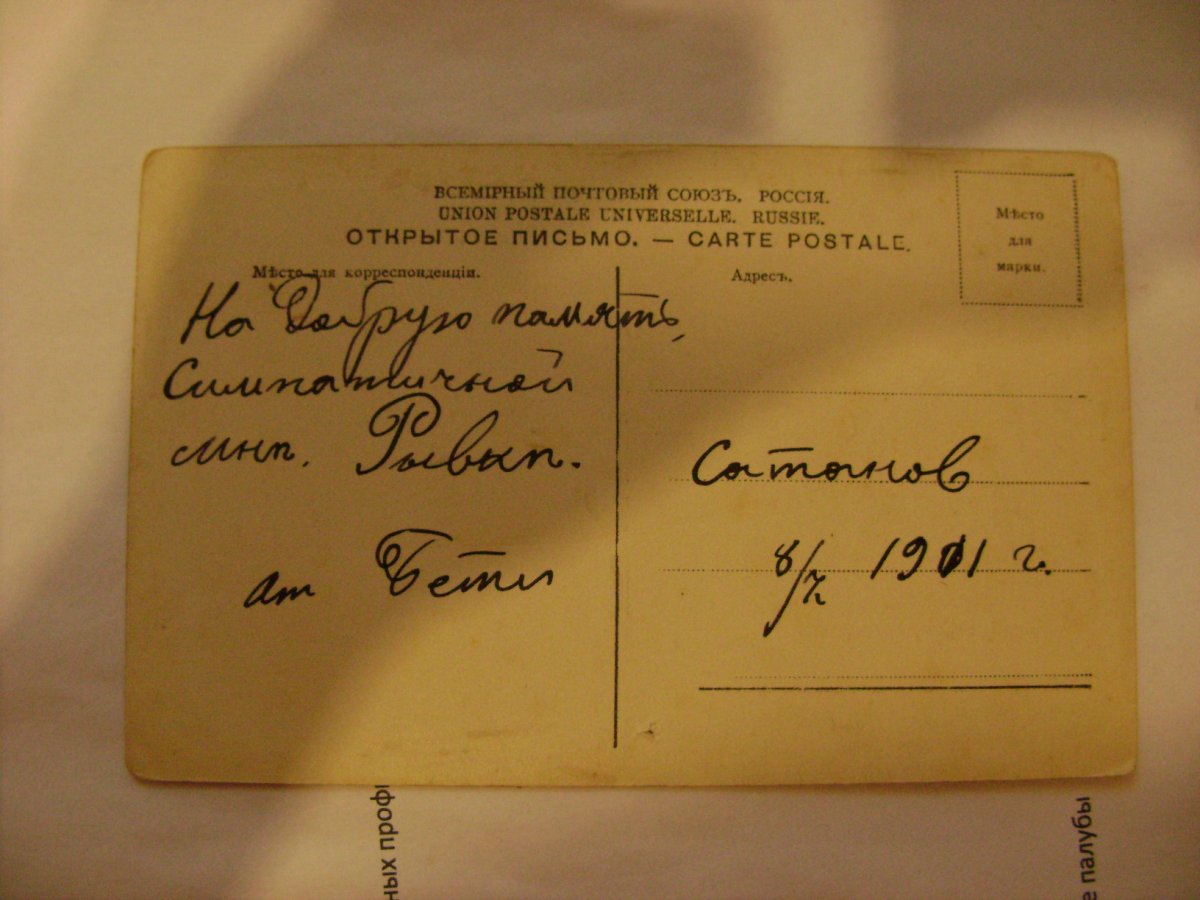 ВСЕМІРНЫЙ ПОЧТОВЫЙ СОЮЗЪ. РОССІЯ.
UNION POSTALE UNIVERSELLE. RUSSIE.
ОТКРЫТОЕ ПИСЬМО. — CARTE POSTALE.
Мѣсто для корреспонденціи.
Адресъ.
Мѣсто
для
марки.
На Добрую память,
Симпатичной
Рывкп.
от Бети
Сатанов
8/7 1911 г.
ных проф
е палубы